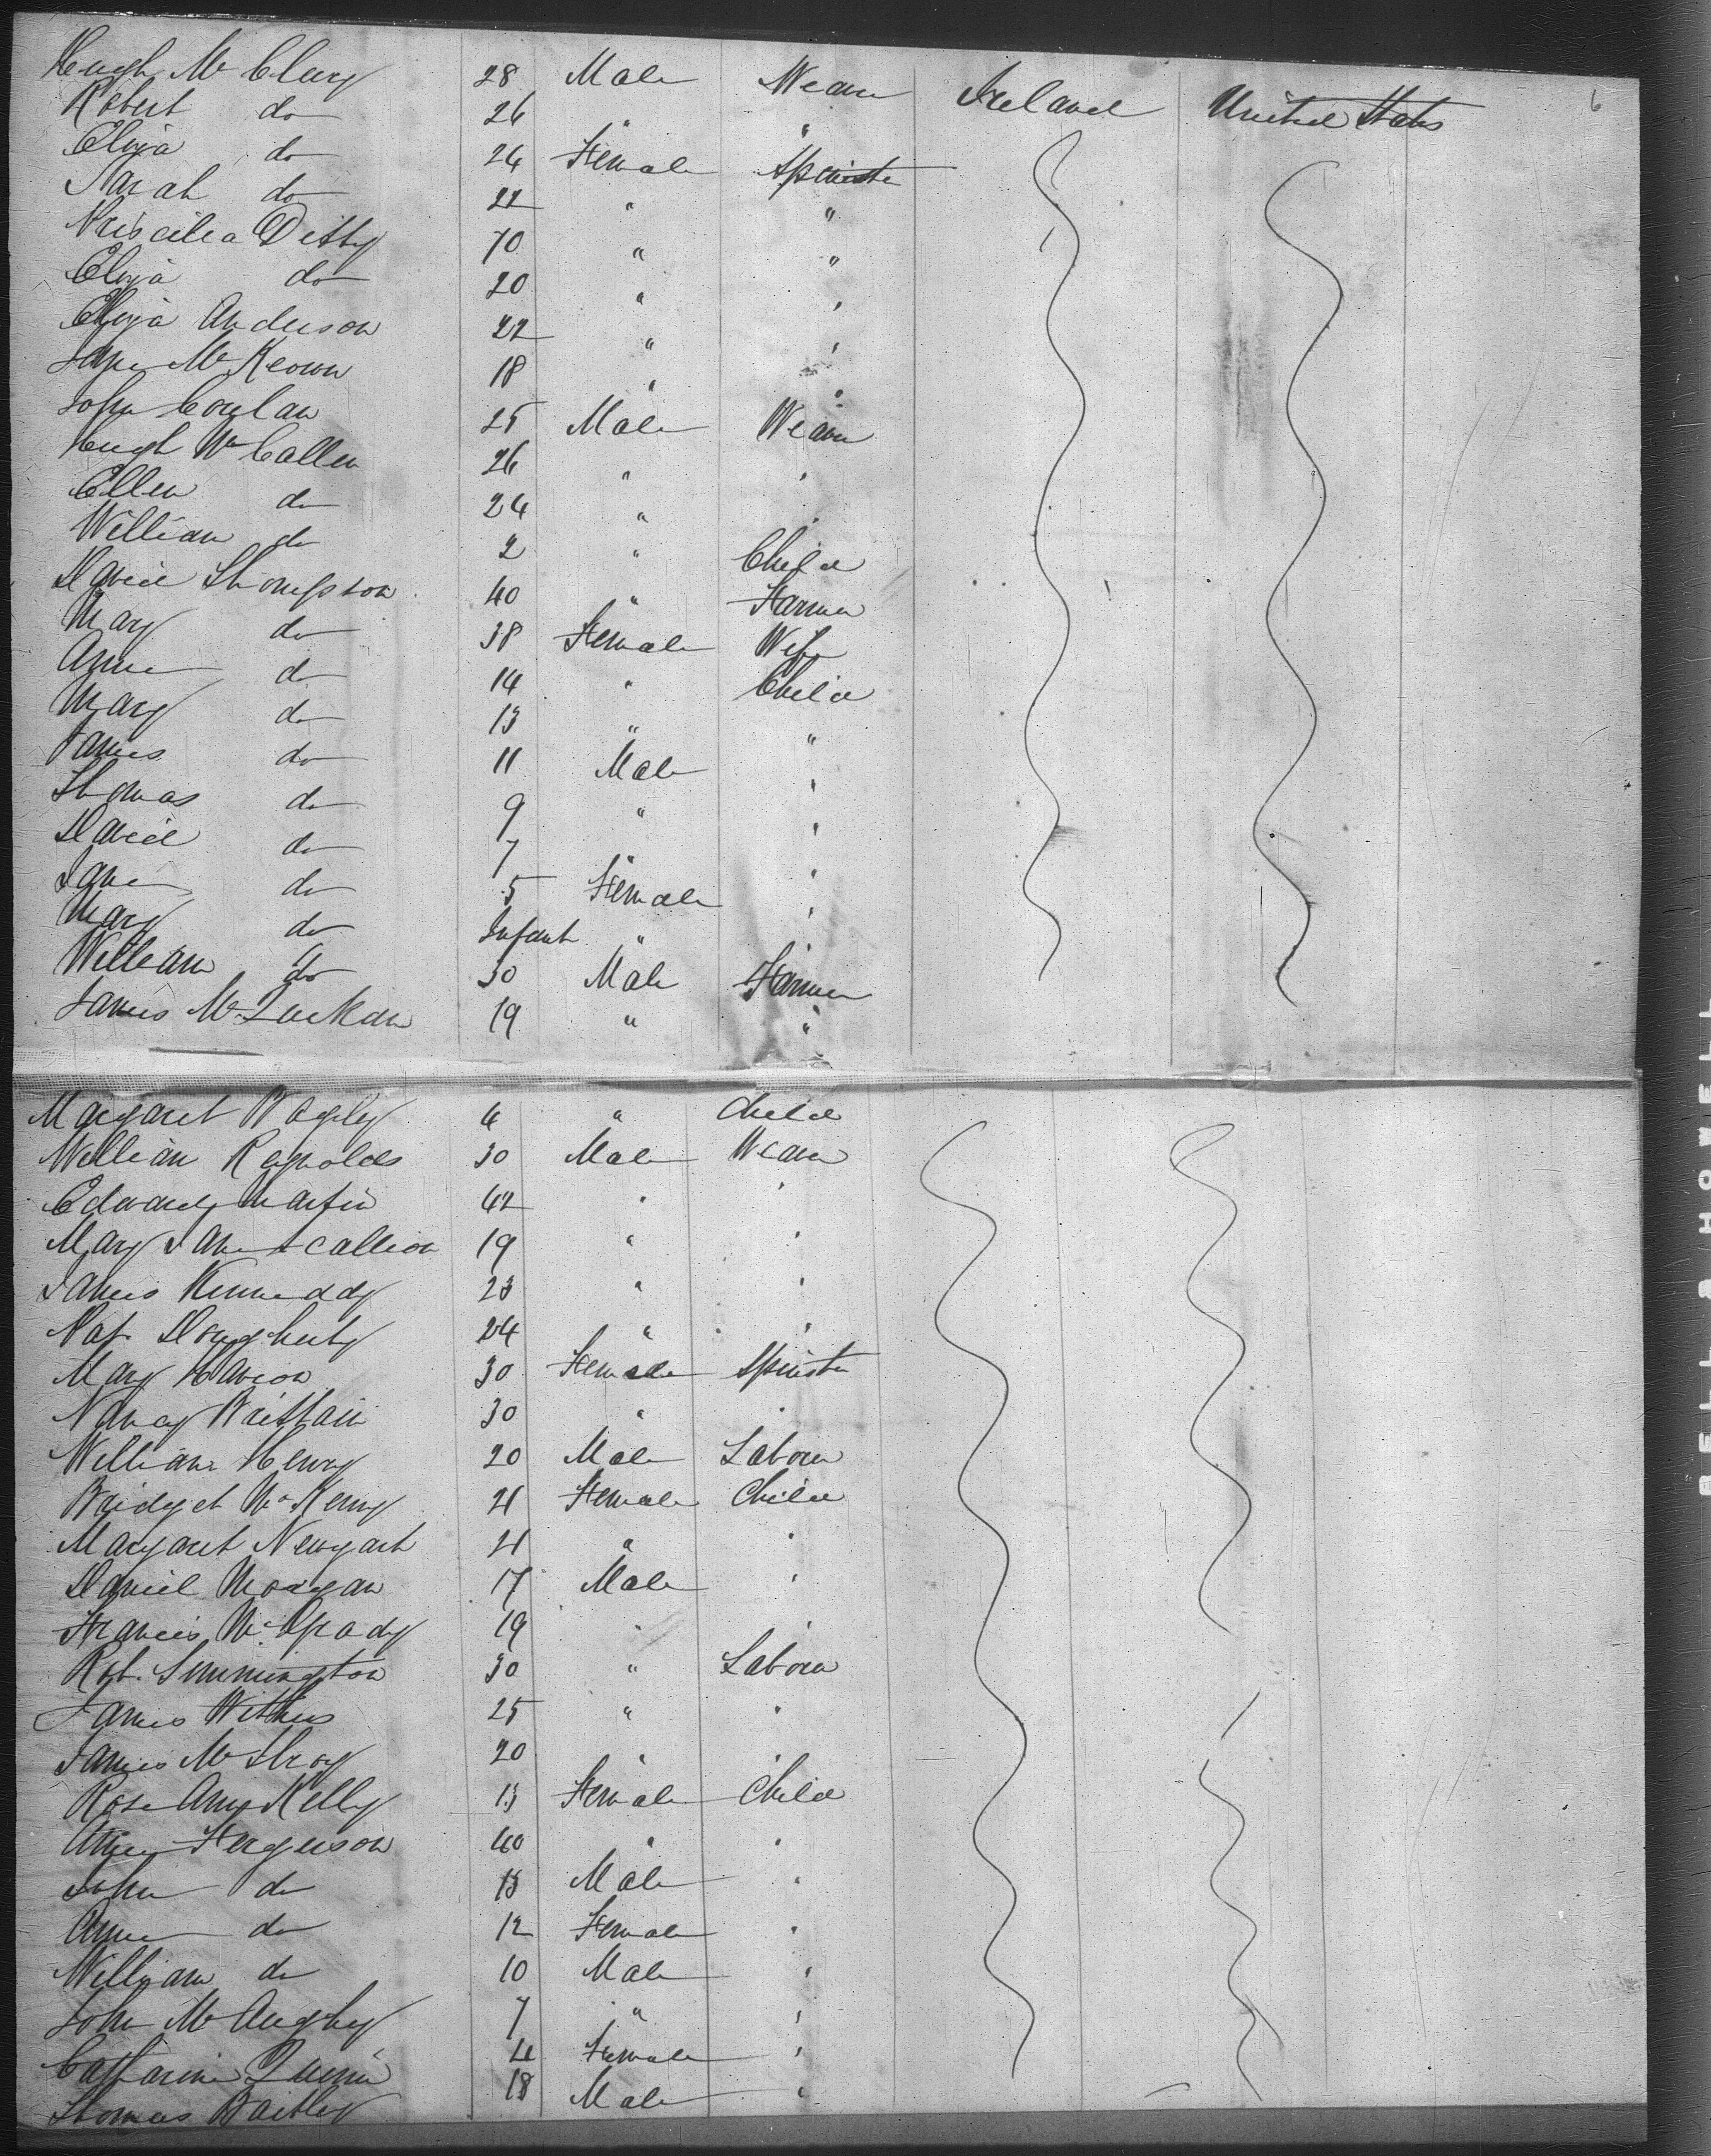 Hugh Mc Clury 28 Male Weaver Ireland United States
Robert do 26 " "
Eliza do 24 Female Spinster
Sarah do 22 " "
Priscilla Ditty 70 " "
Eliza do 20 " "
Eliza Anderson 22 " "
Jane McKeown 18 " "
John Conlan 25 Male Weaver
Hugh McCallen 26 " "
Ellen do 24 " "
William do 2 " Child
David Thompson 40 " Farmer
Mary do 38 Female Wife
Anne do 14 " Child
Mary do 13 " "
James do 11 Male "
Thomas do 9 " "
David do 7 " "
Jane do 5 Female "
Mary do Infant " "
William do 30 Male Farmer
James McLuckan 19 " "
Margaret Bagley 6 " Child
William Reynolds 30 Male Weaver
Edward Martin 42 " "
Mary Jane 19 " "
James Kennedy 23 " "
Pat Dougherty 24 " "
Mary 30 Female Spinster
Nancy Brittain 30 " "
William Henry 20 Male Laborer
Bridget McKenny 21 Female Child
Margaret 21 " "
Daniel Morgan 17 Male "
Francis McGrady 19 " "
Robt. Simmington 30 " Laborer
James Withers 25 " "
James McIlroy 20 " "
Rose Ann Kelly 13 Female Child
Anne Ferguson 40 " "
John do 13 Male "
Anne do 12 Female "
William do 10 Male "
John McAughey 7 " "
Catharine Quinn 11 Female "
Thomas 18 Male "
6
BELL & HOWELL